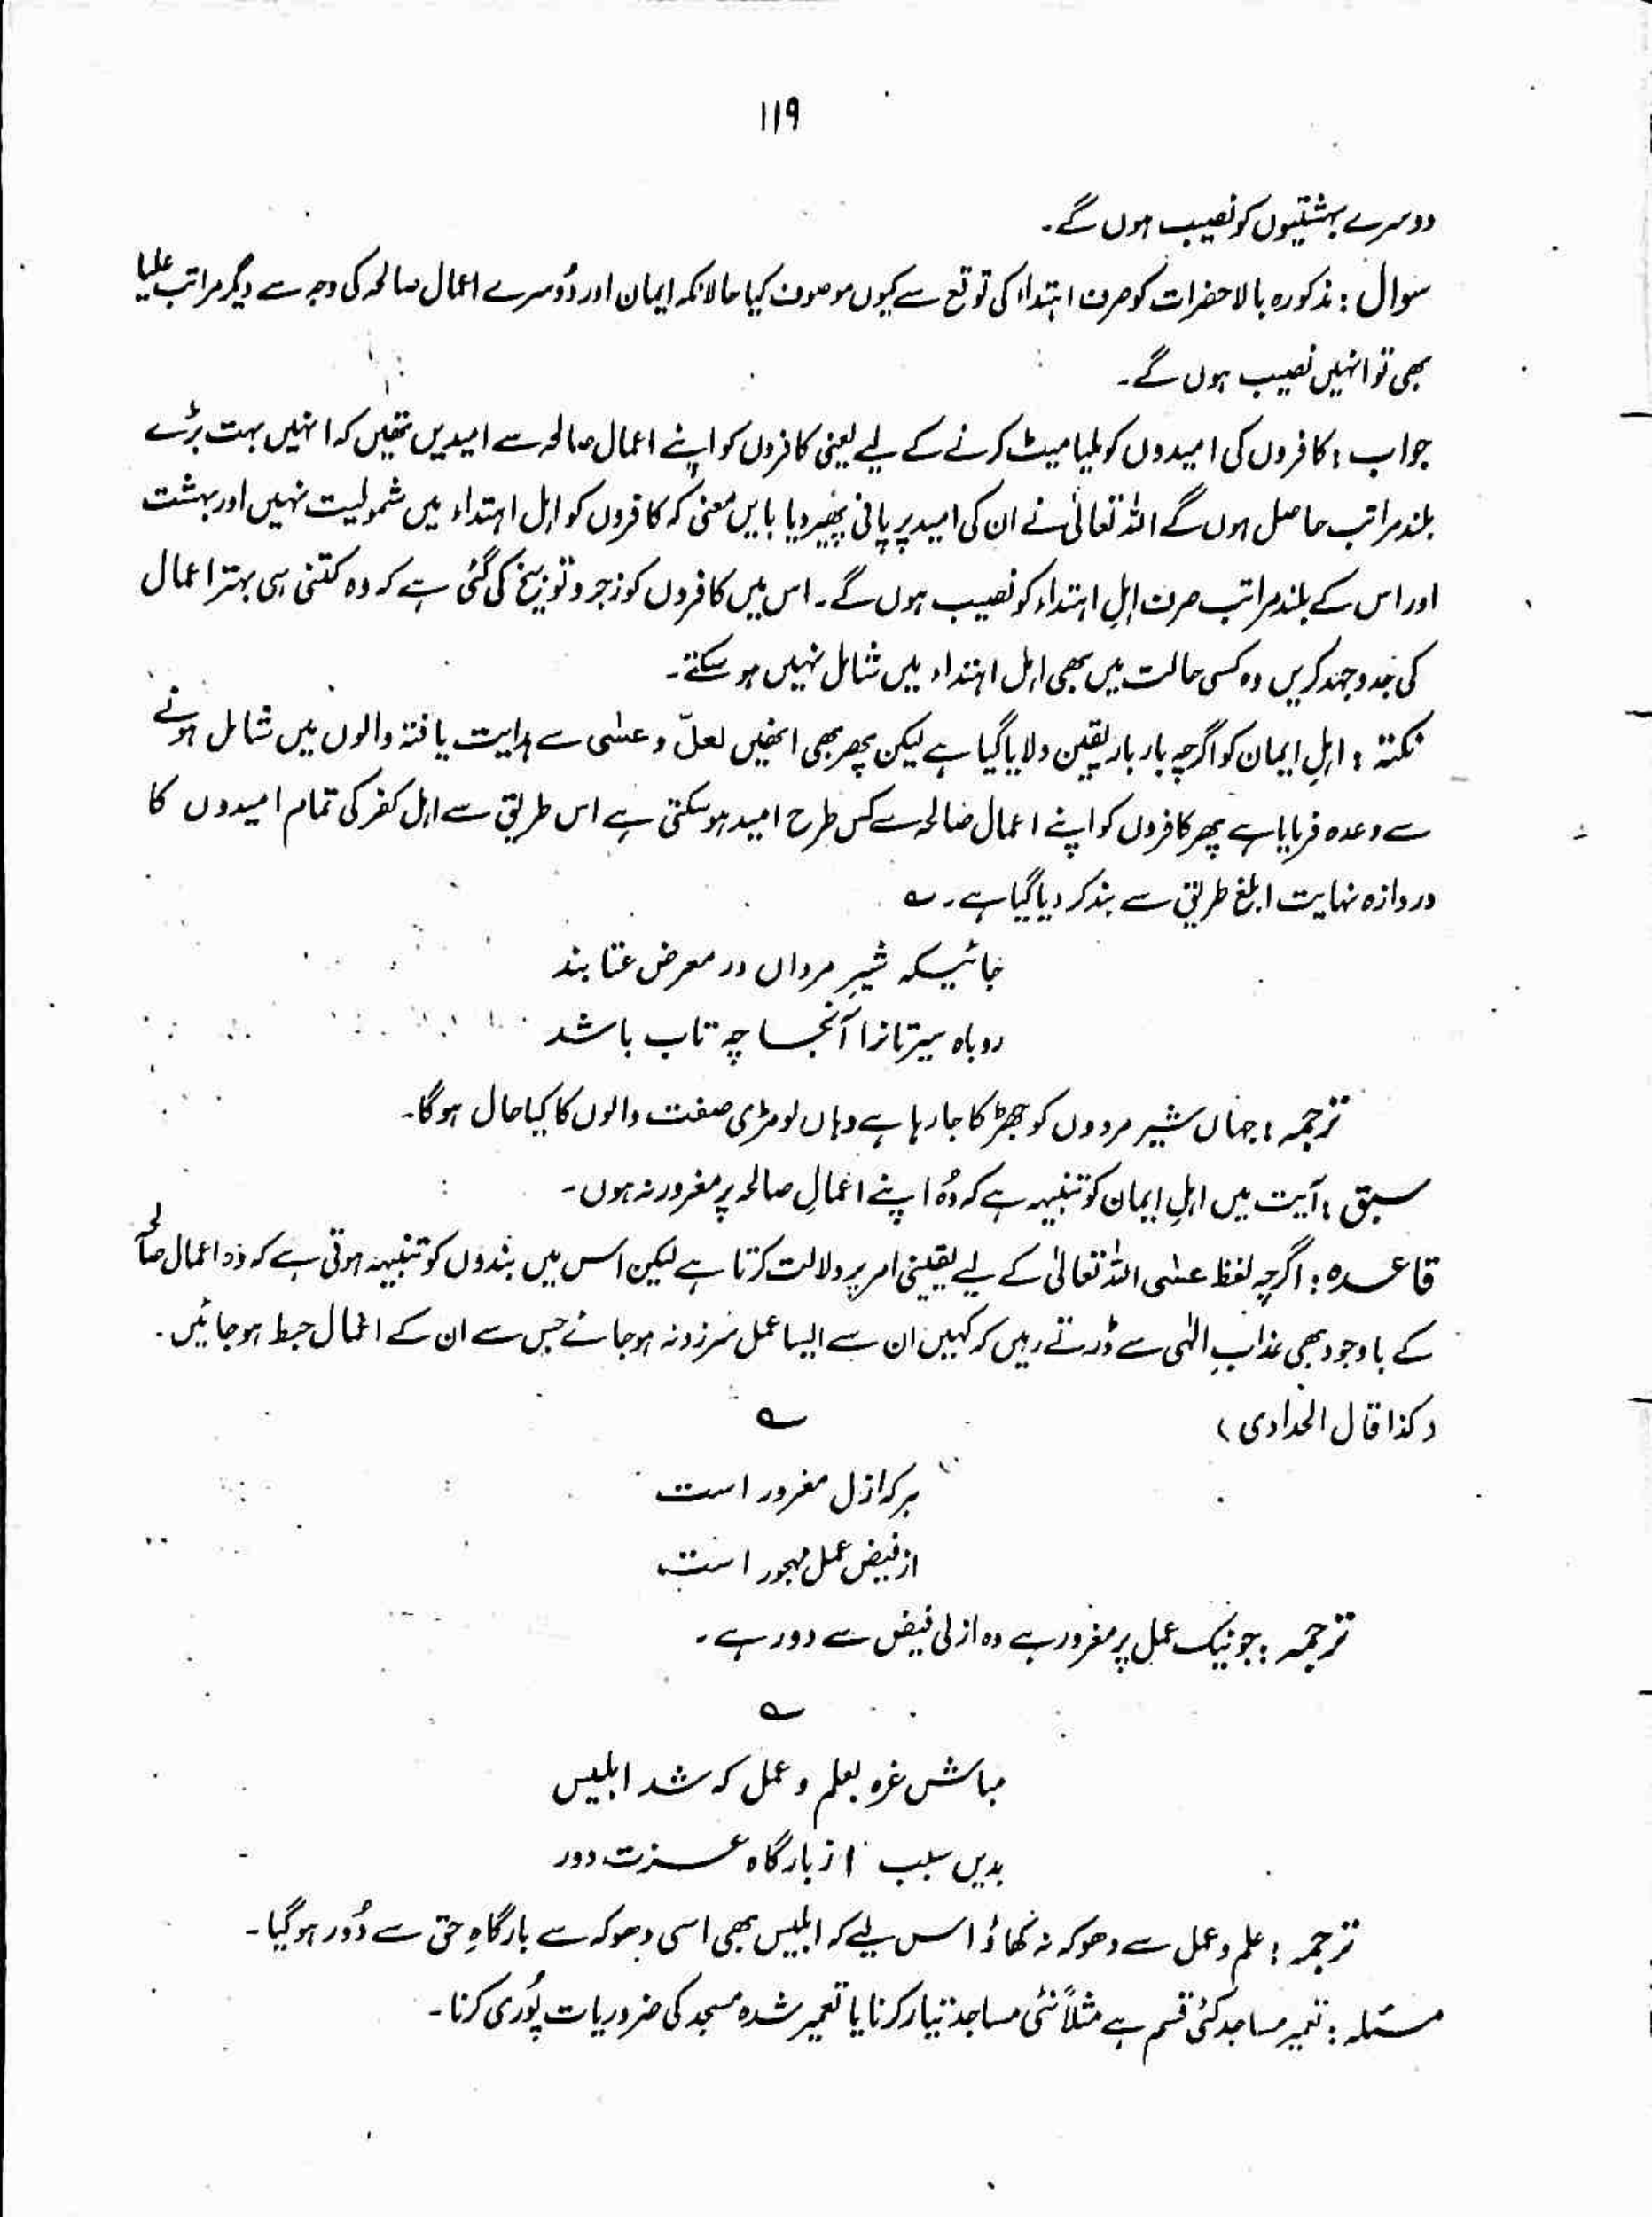 ۱۱۹
دوسرے بہشتیوں کو نصیب ہوں گے۔
سوال : مذکورہ بالا حضرات کو صرف اہتداء کی توقع سے کیوں موصوف کیا حالانکہ ایمان اور دُوسرے اعمال صالحہ کی وجہ سے دیگر مراتب علیا
بھی تو انہیں نصیب ہوں گے۔
جواب : کافروں کی امیدوں کو ملیا میٹ کرنے کے لیے یعنی کافروں کو اپنے اعمال صالحہ سے امیدیں تھیں کہ انہیں بہت بڑے
بلند مراتب حاصل ہوں گے اللہ تعالیٰ نے ان کی امید پر پانی پھیر دیا بایں معنی کہ کافروں کو اہل اہتداء میں شمولیت نہیں اور بہشت
اور اس کے بلند مراتب صرف اہلِ اہتداء کو نصیب ہوں گے۔ اس میں کافروں کو زجر و توبیخ کی گئی ہے کہ وہ کتنی ہی بہتر اعمال
کی جدوجہد کریں وہ کسی حالت میں بھی اہل اہتداء میں شامل نہیں ہو سکتے۔
نکتہ : اہلِ ایمان کو اگرچہ بار بار یقین دلایا گیا ہے لیکن پھر بھی انھیں لعلّ و عسٰی سے ہدایت یافتہ والوں میں شامل ہونے
سے وعدہ فرمایا ہے پھر کافروں کو اپنے اعمال صالحہ سے کس طرح امید ہو سکتی ہے اس طریق سے اہل کفر کی تمام امیدوں کا
دروازہ نہایت ابلغ طریق سے بند کر دیا گیا ہے۔ ؎
جائیکہ شیرِ مرداں در معرض عتابند
روباہ سیرتانرا آنجا چہ تاب باشد
ترجمہ : جہاں شیر مردوں کو جھڑکا جا رہا ہے وہاں لومڑی صفت والوں کا کیا حال ہوگا۔
سبق : آیت میں اہلِ ایمان کو تنبیہہ ہے کہ وُہ اپنے اعمالِ صالحہ پر مغرور نہ ہوں۔
قاعدہ : اگرچہ لفظ عسٰی اللہ تعالیٰ کے لیے یقینی امر پر دلالت کرتا ہے لیکن اس میں بندوں کو تنبیہہ ہوتی ہے کہ وہ اعمال صالحہ
کے باوجود بھی عذابِ الٰہی سے ڈرتے رہیں کہ کہیں ان سے ایسا عمل سرزد نہ ہو جائے جس سے ان کے اعمال حبط ہو جائیں۔
(کذا قال الحدادی) ؎
ہرکہ ازل مغرور است
از فیض عمل مہجور است
ترجمہ : جو نیک عمل پر مغرور ہے وہ ازلی فیض سے دور ہے۔
؎
مباش غرہ بعلم و عمل کہ شد ابلیس
بدیں سبب از بارگاہ عزت دور
ترجمہ : علم و عمل سے دھوکہ نہ کھاؤ اس لیے کہ ابلیس بھی اسی دھوکہ سے بارگاہِ حق سے دُور ہو گیا۔
مسئلہ : تعمیر مساجد کئی قسم ہے مثلاً نئی مساجد تیار کرنا یا تعمیر شدہ مسجد کی ضروریات پُوری کرنا۔